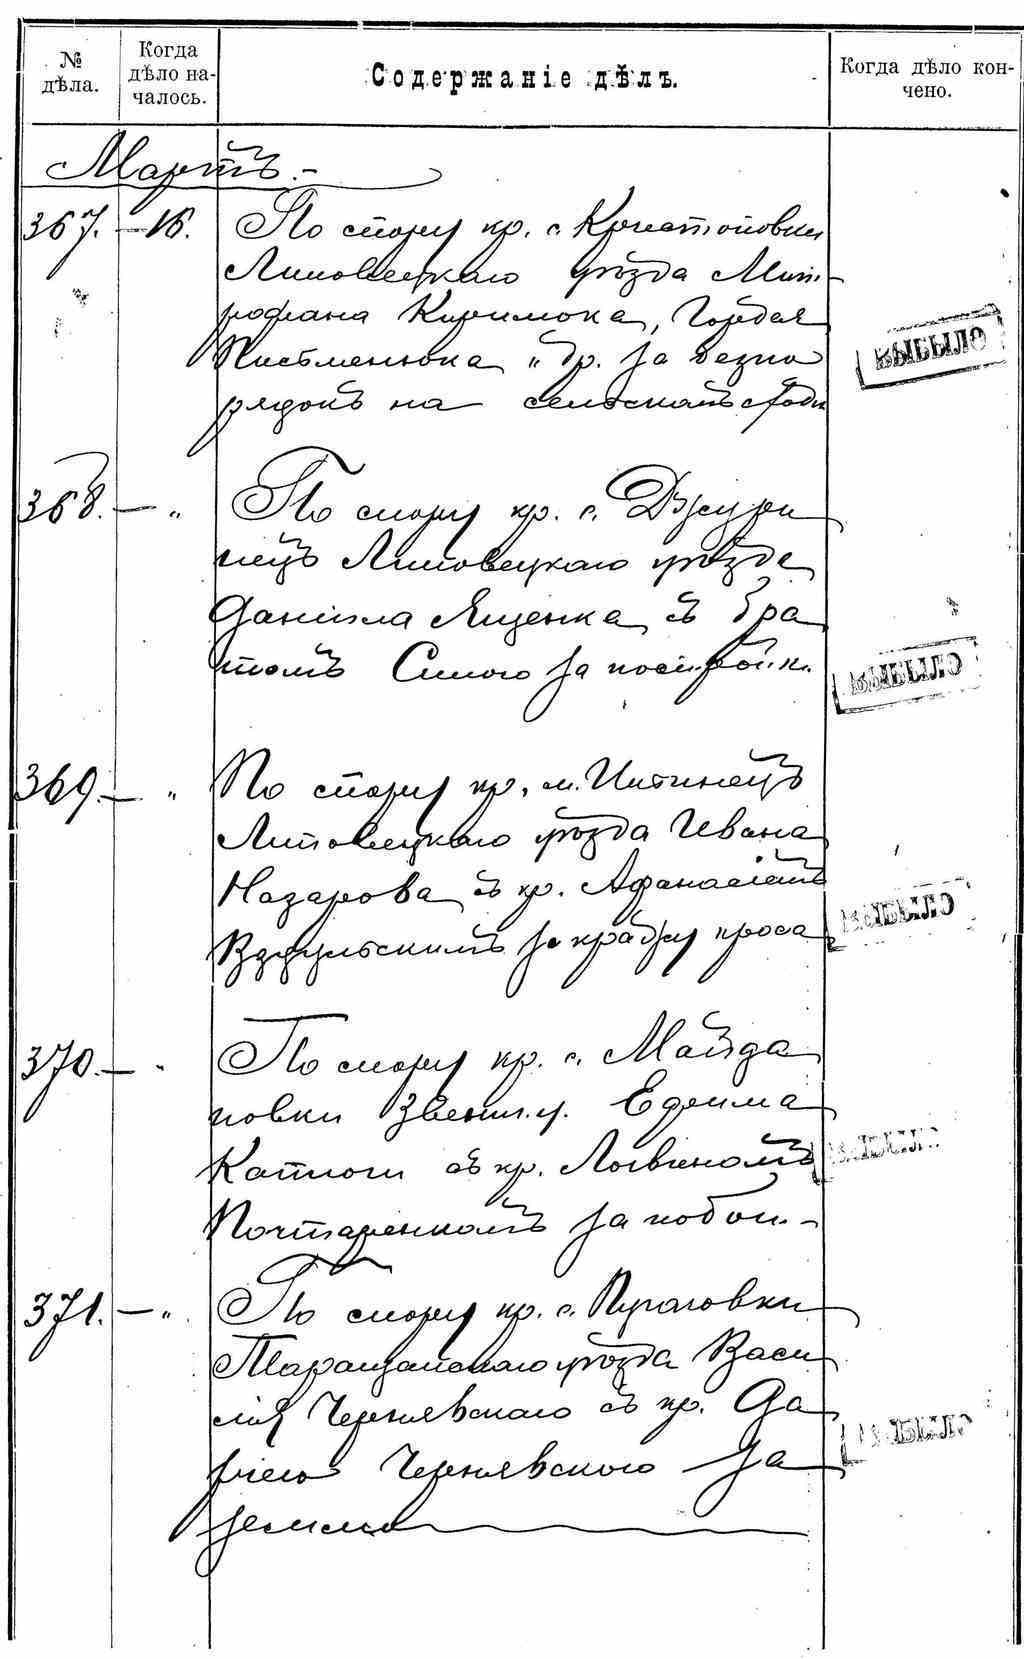 № дѣла.
Когда дѣло началось.
Содержаніе дѣлъ.
Когда дѣло кончено.
Мартъ.-
367. - 16. По спору кр. с.
Липовецкаго уѣзда Мит-
рофана Киримока, Гордея
Письменюка и др. за безпо
рядокъ на сельскомъ сходѣ
ВЫБЫЛО
368. - " По спору кр. с. Джури
нецъ Липовецкаго уѣзда
Даніила Ященка съ бра
томъ за постройк.
ВЫБЫЛО
369. - " По спору кр. м. Ильинецъ
Липовецкаго уѣзда Ивана
Назарова съ кр. Афанасіемъ
за кражу проса
ВЫБЫЛО
370. - " По спору кр. с. Майда
новки Звениг. у. Ефима
съ кр. Логвиномъ
Почтаренкомъ за побои.-
ВЫБЫЛО
371. - " По спору кр. с. Пугачовки
Таращанскаго уѣзда Васи
лія Чернявскаго съ кр. Да
Чернявского за
землю
ВЫБЫЛО